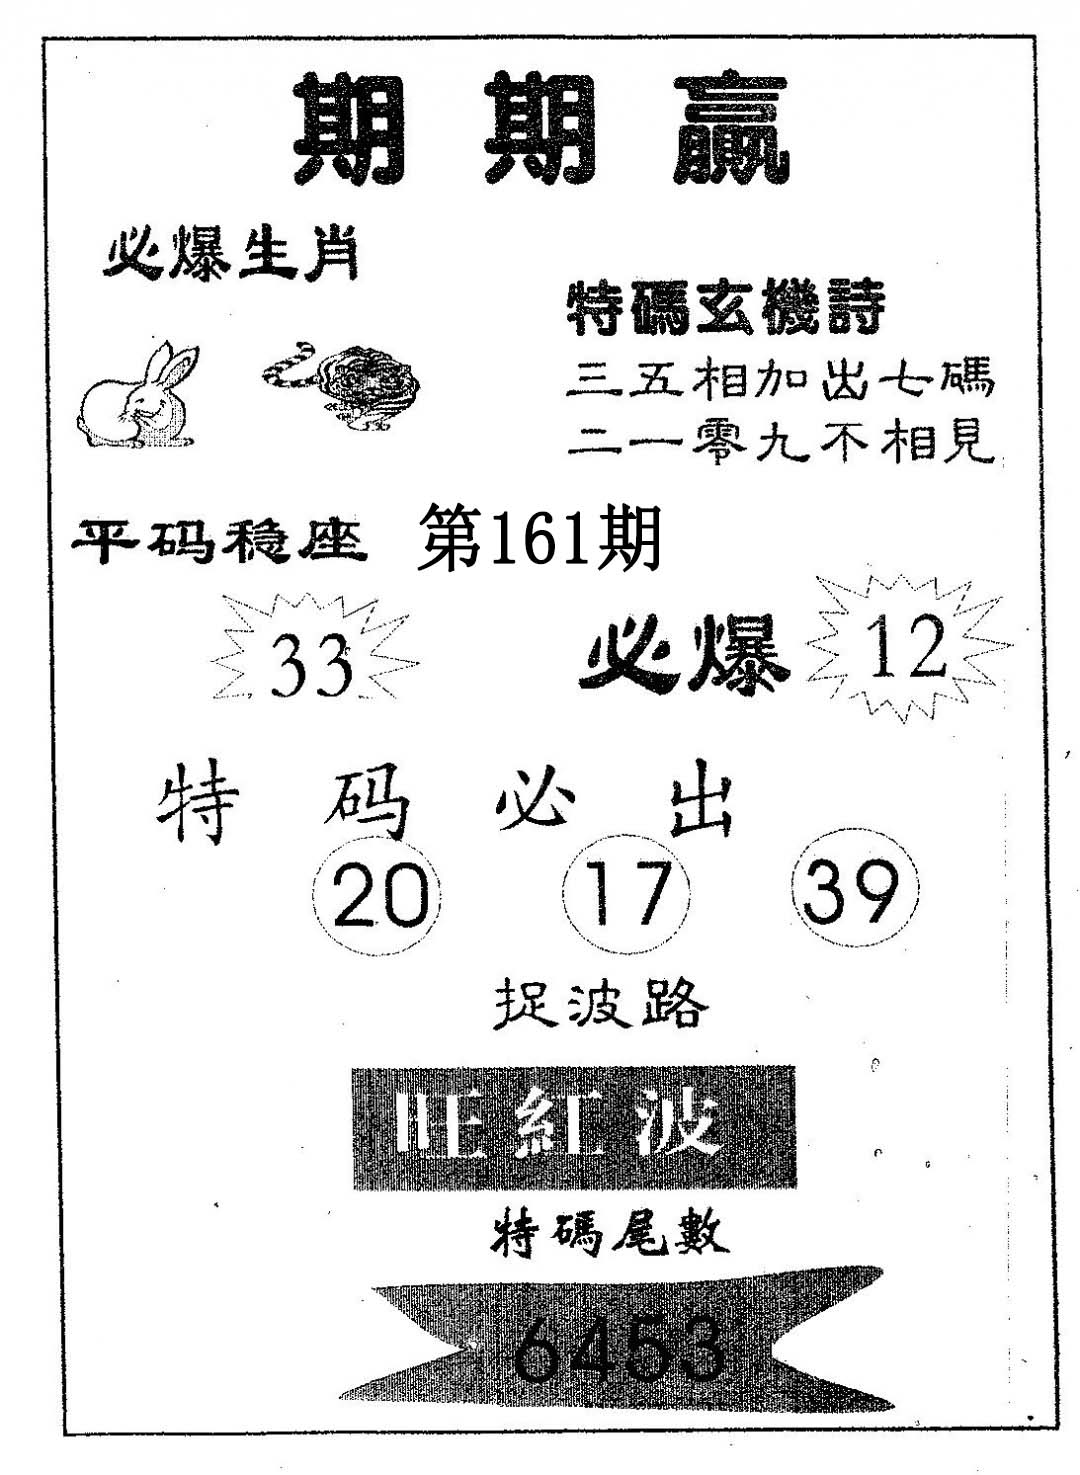 期期赢
必爆生肖
特碼玄機詩
三五相加出七碼
二一零九不相見
平码稳座 第161期
33 必爆 12
特码必出
20 17 39
捉波路
旺紅波
特碼尾數
6453